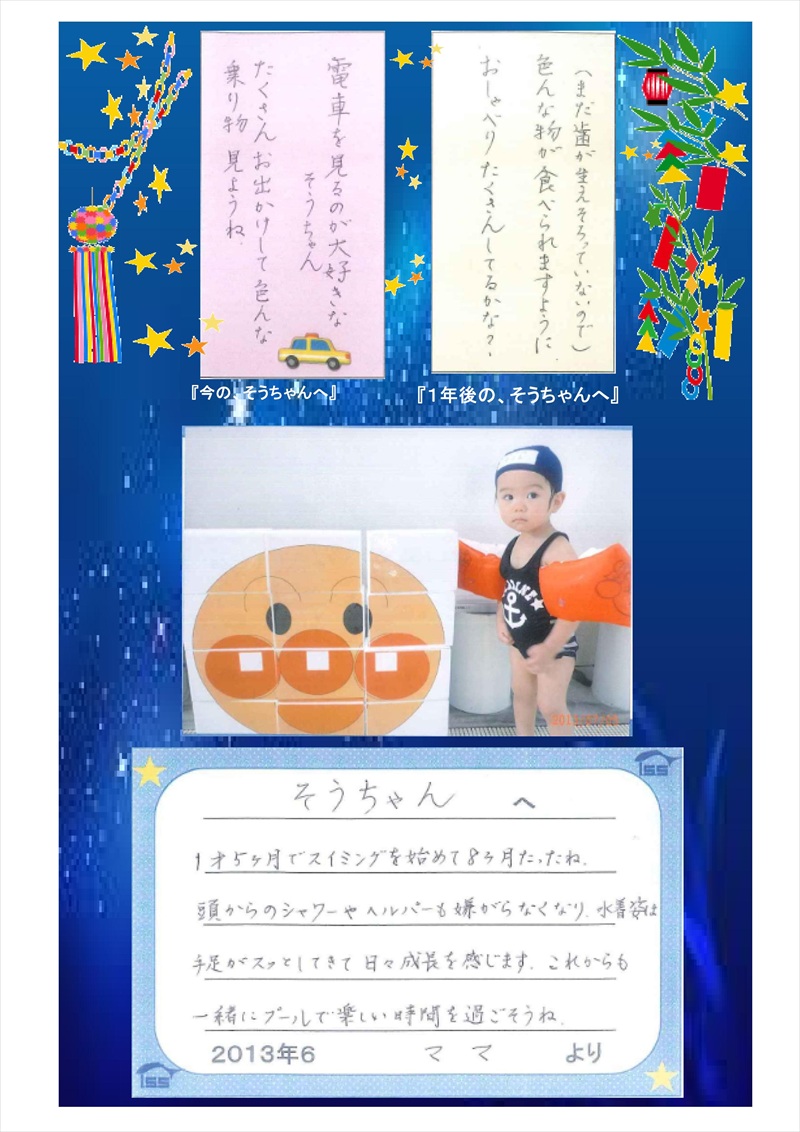 電車を見るのが大好きな
そうちゃん
たくさん お出かけして 色んな
乗り物 見ようね.
『今の、そうちゃんへ』
(まだ歯が生えそろっていないので)
色んな物が食べられますように.
おしゃべり たくさんしてるかな?.
『1年後の、そうちゃんへ』
そうちゃん へ
1才5ヶ月でスイミングを始めて8ヶ月たったね.
頭からのシャワーやヘルパーも嫌がらなくなり.水着姿は
手足がスッとしてきて 日々成長を感じます. これからも
一緒にプールで楽しい時間を過ごそうね.
2013年6 ママ より
ISS
ISS